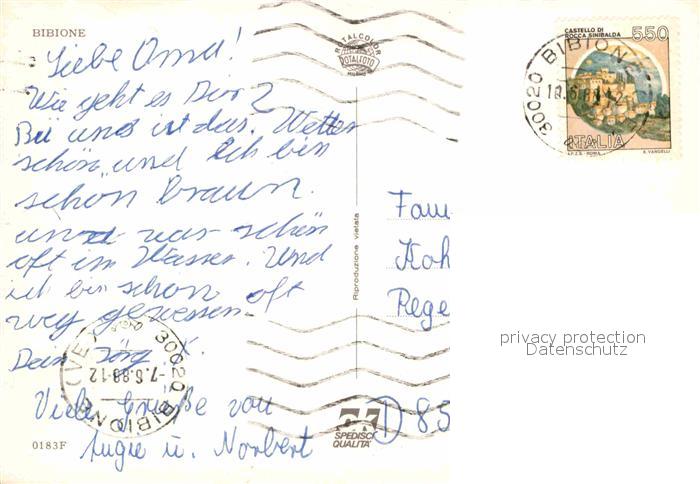 BIBIONE
Liebe Oma!
Wie geht es Dir?
Bei uns ist das Wetter
schön und Ich bin
schon braun.
und war schön
oft im Wasser. Und
ich bin schon oft
weg gewessen
Dein Jörg X.
Viele Grüße von
Angie u. Norbert
0183F
ROTALCOLOR
ROTALFOTO
MILANO
Riproduzione vietata
SPEDISCI
QUALITA'
30020 BIBIONE (VE)
-7.6.88-12
CASTELLO DI
ROCCA SINIBALDA
550
ITALIA
I.P.Z.S. - ROMA
E. VANGELLI
30020 BIBIONE
Fam
Koh
Rege
D 85
privacy protection
Datenschutz